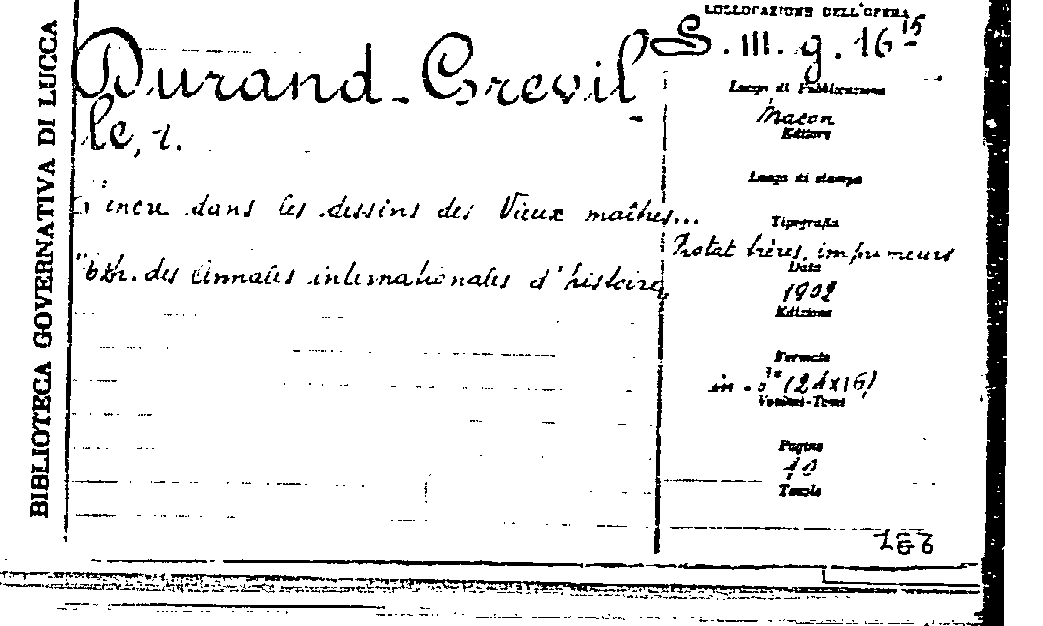 BIBLIOTECA GOVERNATIVA DI LUCCA
Durand-Grevil-
le,
dans les dessins des Vieux maîtres...
des Annales internationales d'histoire,
COLLOCAZIONE DELL'OPERA
S. III. g. 16 15
Luogo di Pubblicazione
Macon
Editore
Luogo di stampa
Tipografia
Protat frères, imprimeurs
Data
1902
Edizione
Formato
in-8° (24x16)
Volumi-Tomi
Pagine
10
Tavole